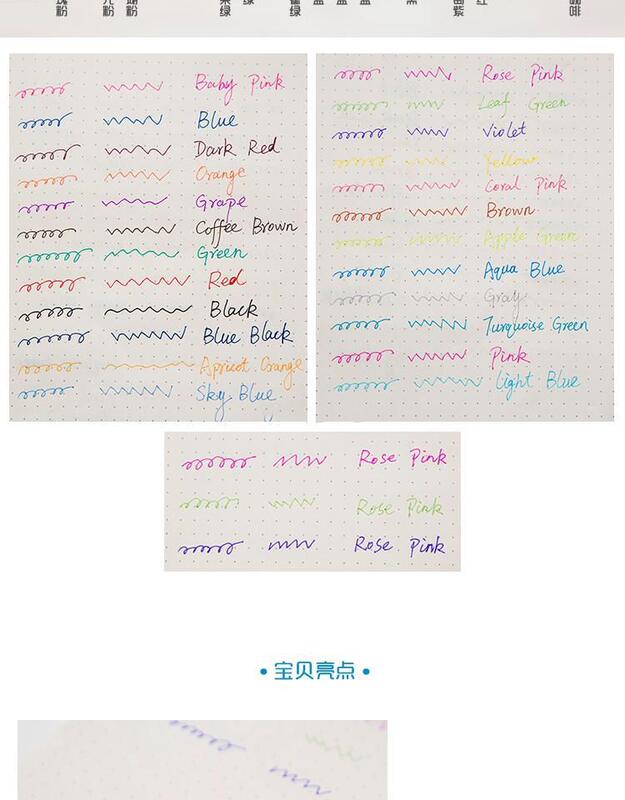 Baby Pink
Blue
Dark Red
Orange
Grape
Coffee Brown
Green
Red
Black
Blue Black
Apricot Orange
Sky Blue
Rose Pink
Leaf Green
Violet
Yellow
Coral Pink
Brown
Apple Green
Aqua Blue
Gray
Turquoise Green
Pink
Light Blue
Rose Pink
Rose Pink
Rose Pink
• 宝贝亮点 •